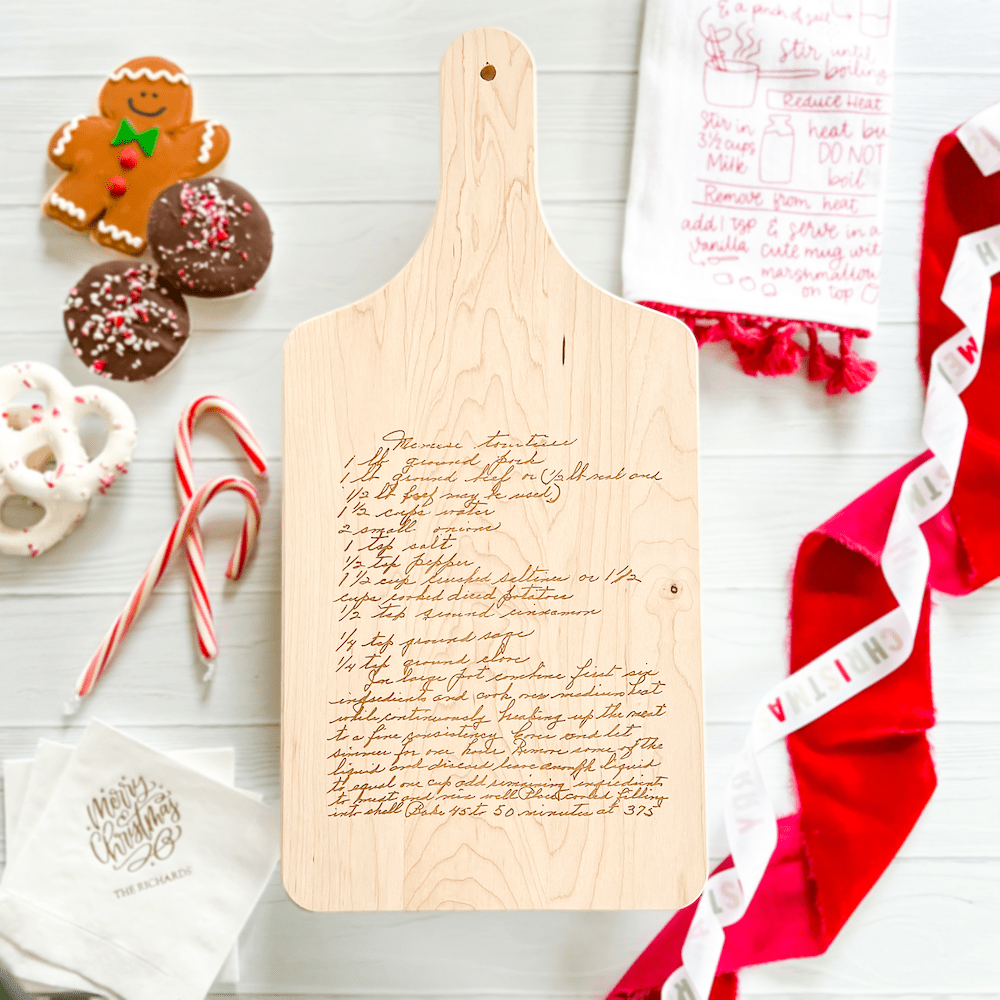 & a pinch of salt
Stir until
boiling
Reduce Heat
Stir in
3½ cups
Milk
heat bu
DO NOT
boil
Remove from heat
add 1 tsp
vanilla
& serve in a
cute mug wit
marshmallow
on top
tourtiere
1 lb ground pork
1 lb ground beef or (½ lb veal and
1/2 lb beef may be used)
1 ½ cups water
2 small onions
1 tsp salt
½ tsp pepper
1 1/2 cup crushed saltines or 1 1/2
cups cooked diced potatoes
½ tsp ground cinnamon
¼ tsp ground sage
¼ tsp ground clove
In large pot combine first six
ingredients and cook over medium heat
while continuously breaking up the meat
to a fine consistency. Cover and let
simmer for one hour Remove some of the
liquid and discard save enough liquid
to equal one cup add remaining ingredients
to meat and mix well Place cooled filling
into shell Bake 45 to 50 minutes at 375
Merry
Christmas
THE RICHARDS
H
ME
STM
CHRISTMA